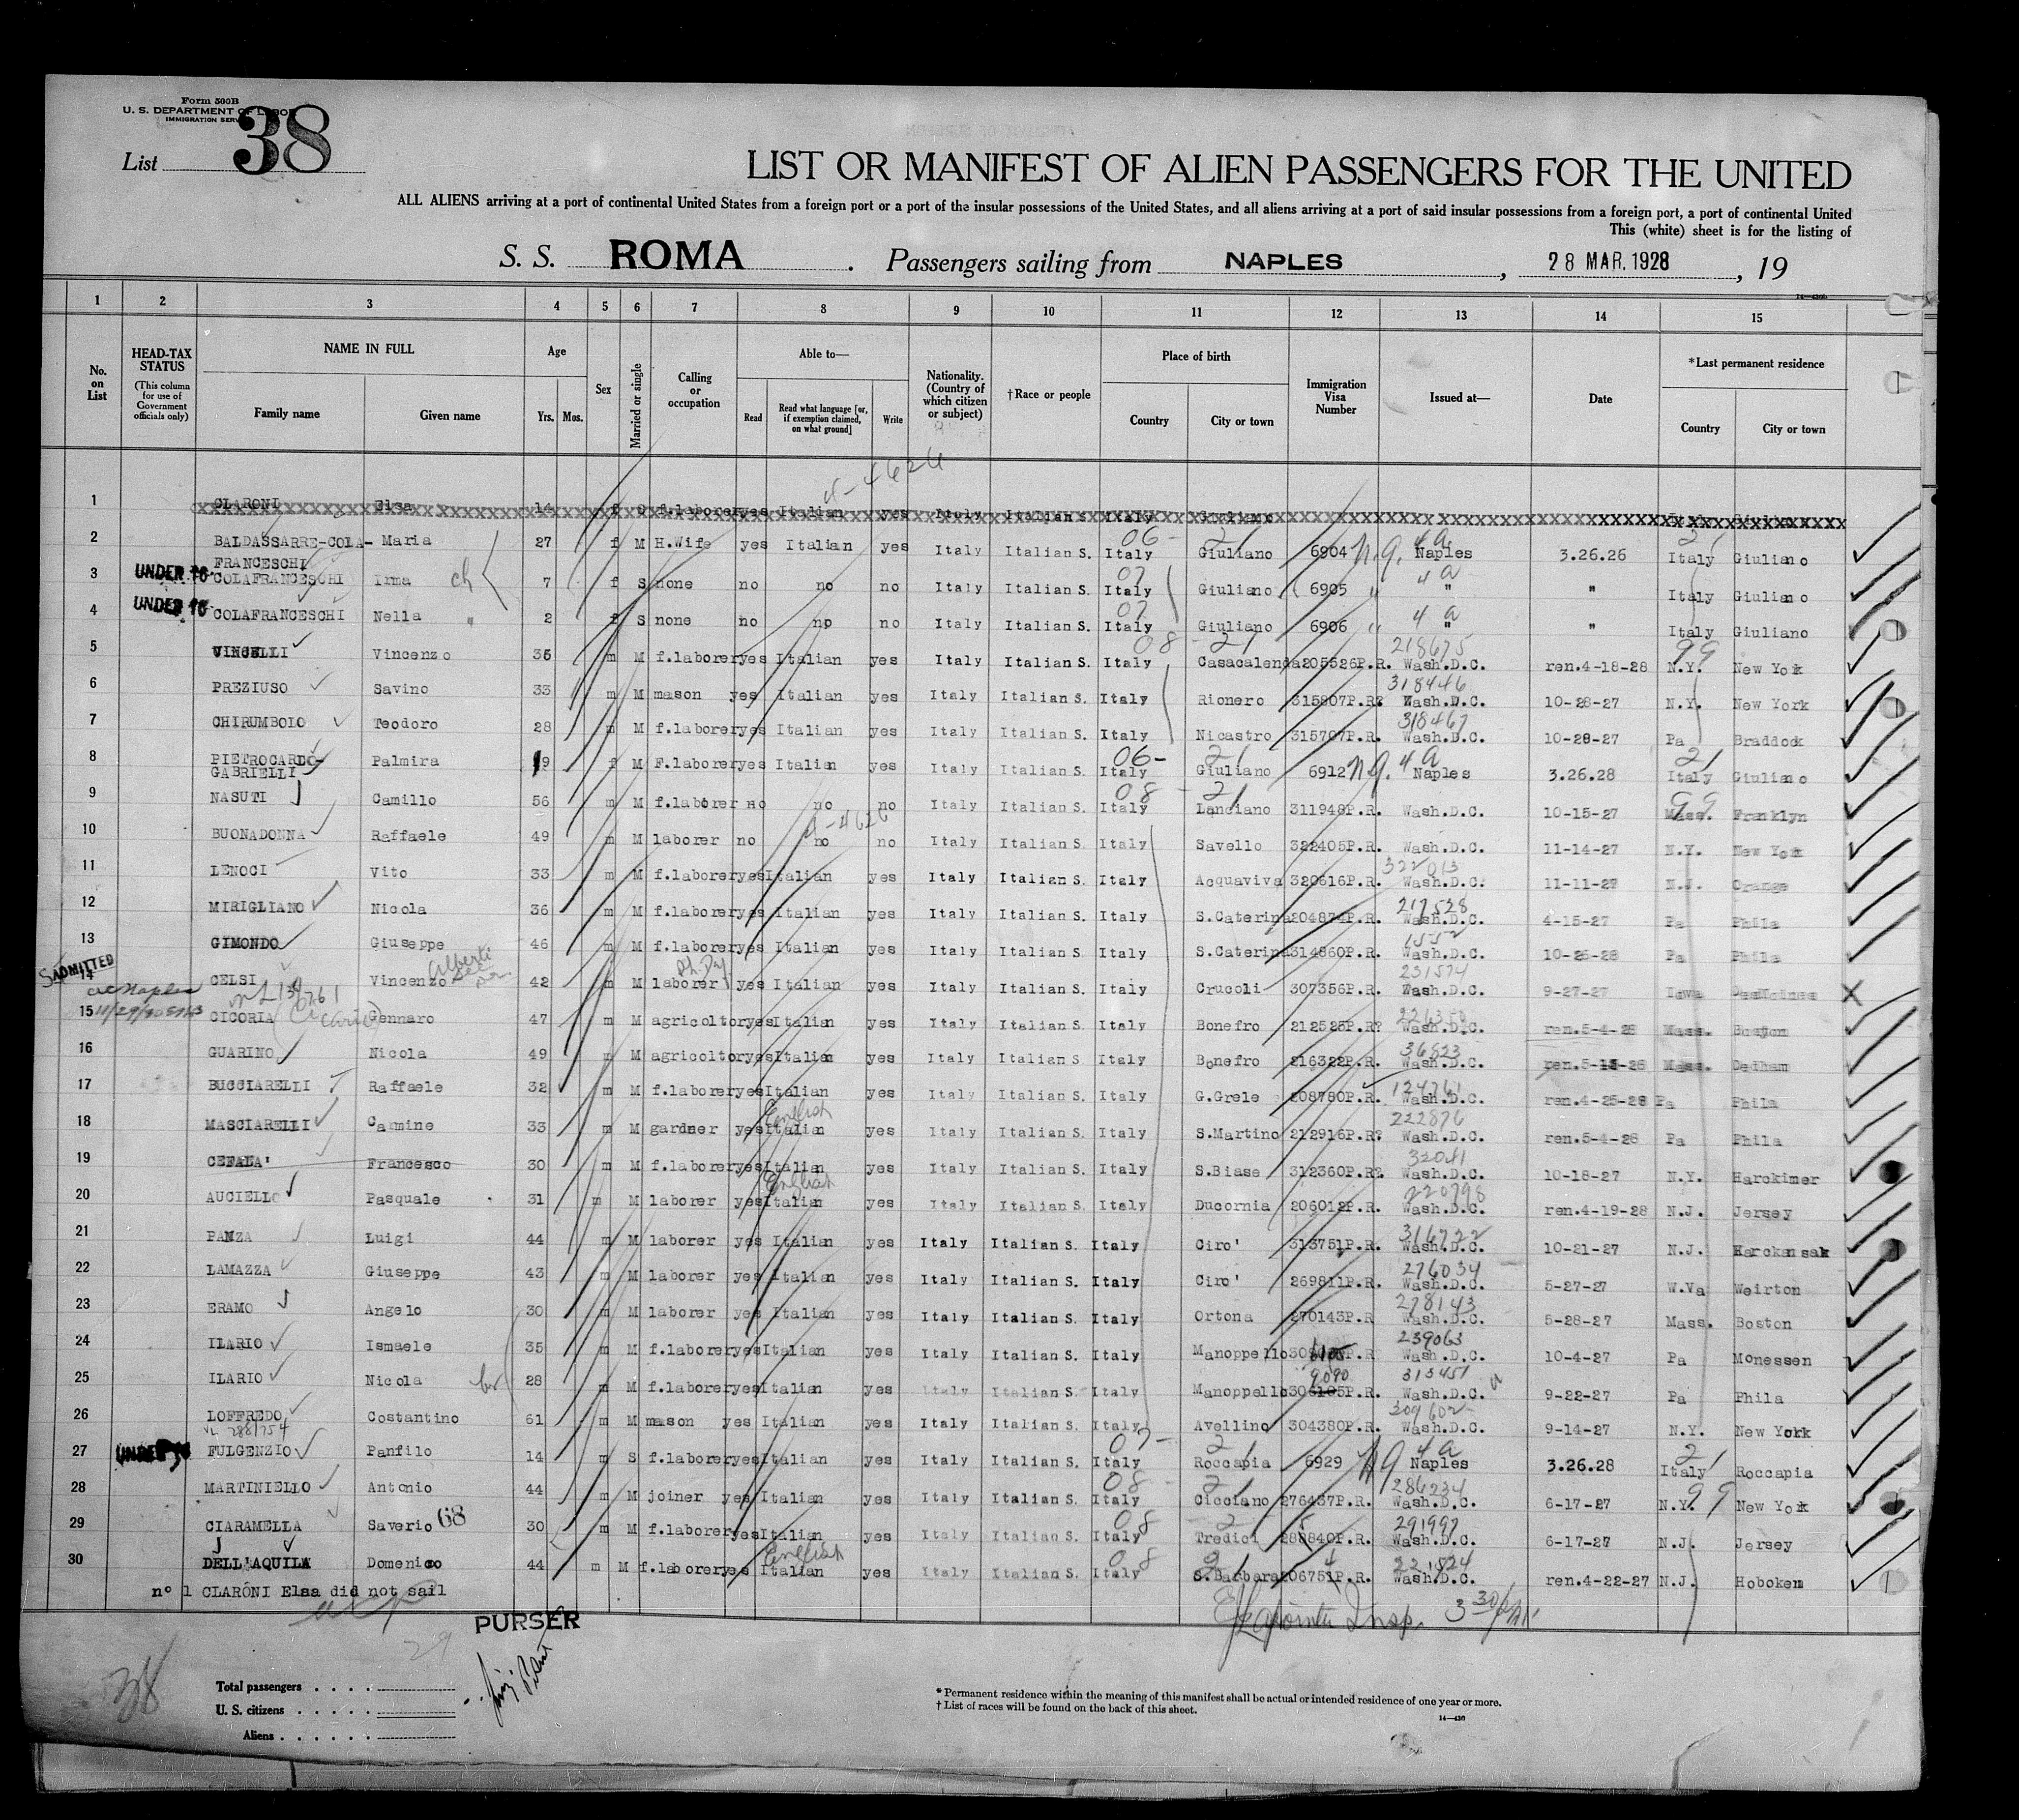 Form 500B
U. S. DEPARTMENT OF LABOR
IMMIGRATION SERV
List 38
LIST OR MANIFEST OF ALIEN PASSENGERS FOR THE UNITED
ALL ALIENS arriving at a port of continental United States from a foreign port or a port of the insular possessions of the United States, and all aliens arriving at a port of said insular possessions from a foreign port, a port of continental United
This (white) sheet is for the listing of
S. S. ROMA. Passengers sailing from NAPLES, 28 MAR. 1928, 19
1 2 3 4 5 6 7 8 9 10 11 12 13 14 15
No. on List
HEAD-TAX STATUS
(This column for use of Government officials only)
NAME IN FULL
Family name
Given name
Age
Yrs. Mos.
Sex
Married or single
Calling or occupation
Able to—
Read
Read what language [or, if exemption claimed, on what ground]
Write
Nationality. (Country of which citizen or subject)
†Race or people
Place of birth
Country
City or town
Immigration Visa Number
Issued at—
Date
*Last permanent residence
Country
City or town
4-4626
1 CLARONI 14 f f.laborer yes Italian yes Italy Italian S. Italy Giuliano
2 BALDASSARRE-COLA-FRANCESCHI Maria 27 f M H.Wife yes Italian yes Italy Italian S. Italy Giuliano 6904 Naples 3.26.26 Italy Giuliano
3 UNDER 16 COLAFRANCESCHI Irma ch 7 f S none no no no Italy Italian S. Italy Giuliano 6905 " " Italy Giuliano
4 UNDER 16 COLAFRANCESCHI Nella " 2 f S none no no no Italy Italian S. Italy Giuliano 6906 " " Italy Giuliano
5 VINCELLI Vincenzo 36 m M f.laborer yes Italian yes Italy Italian S. Italy Casacalenda 205526P.R. 218675 Wash.D.C. ren.4-18-28 N.Y. New York
6 PREZIUSO Savino 33 m M mason yes Italian yes Italy Italian S. Italy Rionero 315807P.R. 318446 Wash.D.C. 10-28-27 N.Y. New York
7 CHIRUMBOLO Teodoro 28 m M f.laborer yes Italian yes Italy Italian S. Italy Nicastro 315707P.R. 318467 Wash.D.C. 10-28-27 Pa Braddock
8 PIETROCARDO-GABRIELLI Palmira 19 f M F.laborer yes Italian yes Italy Italian S. Italy Giuliano 6912 Naples 3.26.28 Italy Giuliano
9 NASUTI Camillo 56 m M f.laborer no no no Italy Italian S. Italy Lanciano 311948P.R. Wash.D.C. 10-15-27 Mass. Franklyn
10 BUONADONNA Raffaele 49 m M laborer no no no Italy Italian S. Italy Savello 322405P.R. Wash.D.C. 11-14-27 N.Y. New York
11 LENOCI Vito 33 m M f.laborer yes Italian yes Italy Italian S. Italy Acquaviva 320616P.R. 322013 Wash.D.C. 11-11-27 N.J. Orange
12 MIRIGLIANO Nicola 36 m M f.laborer yes Italian yes Italy Italian S. Italy S.Caterina 204874P.R. 217528 Wash.D.C. 4-15-27 Pa Phila
13 GIMONDO Giuseppe 46 m M f.laborer yes Italian yes Italy Italian S. Italy S.Caterina 314860P.R. Wash.D.C. 10-25-28 Pa Phila
ADMITTED
14 CELSI Vincenzo 42 m M laborer yes Italian yes Italy Italian S. Italy Crucoli 307356P.R. 231574 Wash.D.C. 9-27-27 Iowa DesMoines
15 CICORIA Gennaro 47 m M agricoltor yes Italian yes Italy Italian S. Italy Bonefro 212525P.R. Wash.D.C. ren.5-4-28 Mass. Boston
16 GUARINO Nicola 49 m M agricoltor yes Italian yes Italy Italian S Italy Bonefro 216322P.R. 36523 Wash.D.C. ren.5-15-28 Mass. Dedham
17 BUCCIARELLI Raffaele 32 m M f.laborer yes Italian yes Italy Italian S. Italy G.Grele 208780P.R. 124761 Wash.D.C. ren.4-25-28 Pa Phila
18 MASCIARELLI Camine 33 m M gardner yes English Italian yes Italy Italian S. Italy S.Martino 212916P.R. 222876 Wash.D.C. ren.5-4-28 Pa Phila
19 CEFALA' Francesco 30 m M f.laborer yes Italian yes Italy Italian S. Italy S.Biase 312360P.R. 32041 Wash.D.C. 10-18-27 N.Y. Harckimer
20 AUCIELLO Pasquale 31 m M laborer yes English Italian yes Italy Italian S. Italy Ducornia 206012P.R. 220798 Wash.D.C. ren.4-19-28 N.J. Jersey
21 PANZA Luigi 44 m M laborer yes Italian yes Italy Italian S. Italy Ciro' 313751P.R. 316722 Wash.D.C. 10-21-27 N.J. Harckansak
22 LAMAZZA Giuseppe 43 m M laborer yes Italian yes Italy Italian S. Italy Ciro' 269811P.R. 276034 Wash.D.C. 5-27-27 W.Va Weirton
23 ERAMO Angelo 30 m M laborer yes Italian yes Italy Italian S. Italy Ortona 270143P.R 278143 Wash.D.C. 5-28-27 Mass. Boston
24 ILARIO Ismaele 35 m M f.laborer yes Italian yes Italy Italian S. Italy Manoppello 239063 Wash.D.C. 10-4-27 Pa Monessen
25 ILARIO Nicola br 28 m M f.laborer yes Italian yes Italy Italian S. Italy Manoppello 9090 313451 Wash.D.C. 9-22-27 Pa Phila
26 LOFFREDO Costantino 61 m M mason yes Italian yes Italy Italian S. Italy Avellino 304380P.R. 309602 Wash.D.C. 9-14-27 N.Y. New York
27 UNDER 16 FULGENZIO Panfilo 14 m S f.laborer yes Italian yes Italy Italian S. Italy Roccapia 6929 Naples 3.26.28 Italy Roccapia
28 MARTINIELLO Antonio 44 m M joiner yes Italian yes Italy Italian S. Italy Cicciano 276437P.R. 286234 Wash.D.C. 6-17-27 N.Y. New York
29 CIARAMELLA Saverio 68 30 m M f.laborer yes Italian yes Italy Italian S. Italy Tredici 288840P.R. 291997 Wash.D.C. 6-17-27 N.J. Jersey
30 DELL'AQUILA Domenico 44 m M f.laborer yes English Italian yes Italy Italian S. Italy S.Barbara 206751P.R. 221824 Wash.D.C. ren.4-22-27 N.J. Hoboken
n° 1 CLARONI Elsa did not sail
PURSER
38
29
Total passengers
U. S. citizens
Aliens
* Permanent residence within the meaning of this manifest shall be actual or intended residence of one year or more.
† List of races will be found on the back of this sheet.
14—430